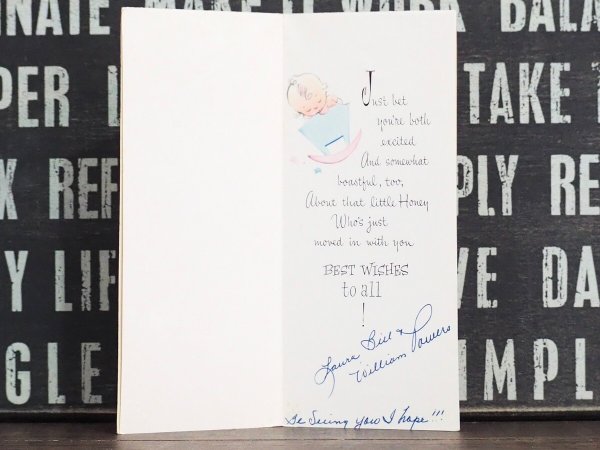 INATE MAKE IT WORK BALA
PER
TAKE
X REF
PLY RE
Y LIF
VE DA
GLE
IMPL
Just bet
you're both
excited
And somewhat
boastful, too,
About that little Honey
Who's just
moved in with you
BEST WISHES
to all
!
Laura Bill &
William Powers
Be Seeing you I hope!!!